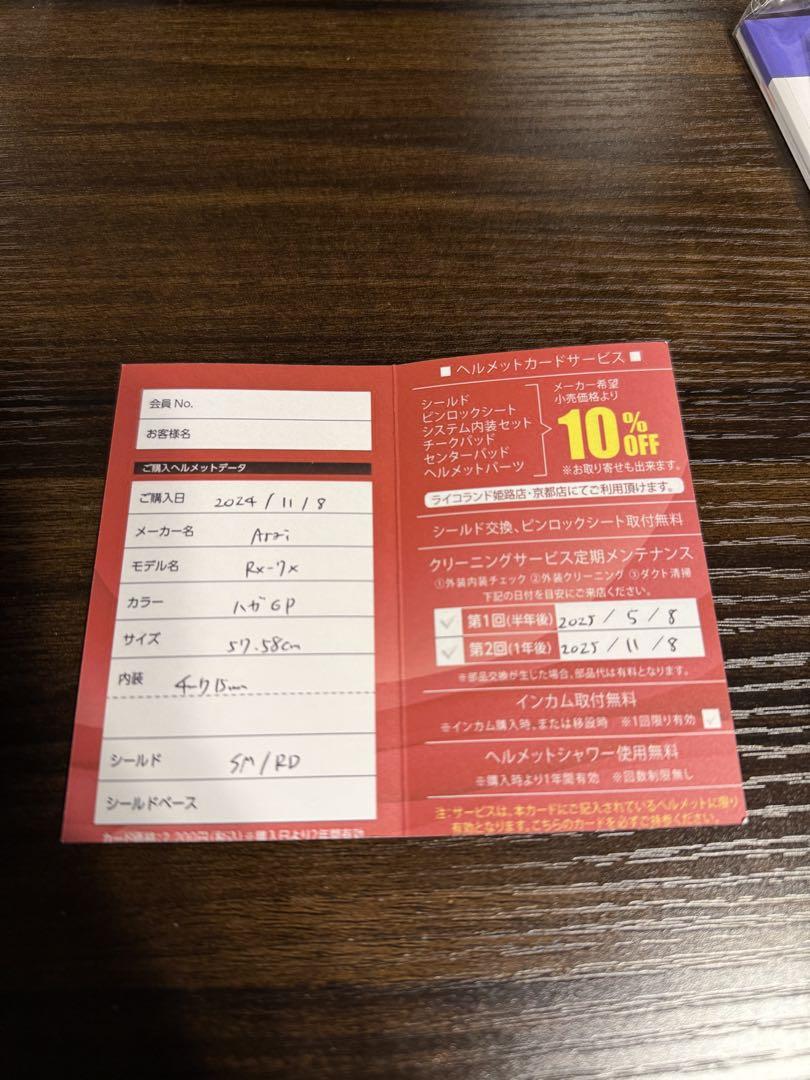 会員No.
お客様名
ご購入ヘルメットデータ
ご購入日 2024/11/8
メーカー名 Arai
モデル名 RX-7X
カラー ハガGP
サイズ 57.58cm
内装 チーク15mm
シールド SM/RD
シールドベース
カード価格:2,200円(税込)※購入日より2年間有効
■ヘルメットカードサービス■
シールド
ピンロックシート
システム内装セット
チークパッド
センターパッド
ヘルメットパーツ
メーカー希望
小売価格より
10%OFF
※お取り寄せも出来ます。
ライコランド姫路店・京都店にてご利用頂けます。
シールド交換、ピンロックシート取付無料
クリーニングサービス定期メンテナンス
①外装内装チェック ②外装クリーニング ③ダクト清掃
下記の日付を目安にご来店ください。
第1回(半年後) 2025/5/8
第2回(1年後) 2025/11/8
※部品交換が生じた場合、部品代は有料となります。
インカム取付無料
※インカム購入時、または移設時 ※1回限り有効
ヘルメットシャワー使用無料
※購入時より1年間有効 ※回数制限無し
注:サービスは、本カードにご記入されているヘルメットに限り
有効となります。こちらのカードを必ずご持参ください。